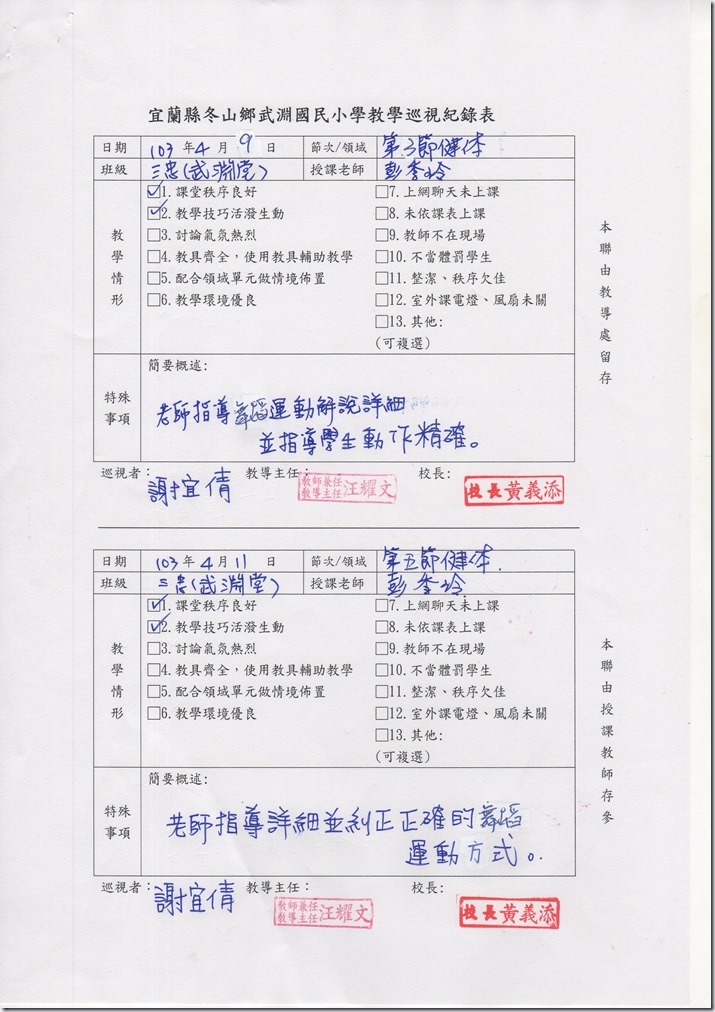 宜蘭縣冬山鄉武淵國民小學教學巡視紀錄表
日期 103年4月9日 節次/領域 第3節健体
班級 三忠(武淵堂) 授課老師 彭季玲
教學情形
☑1.課堂秩序良好 □7.上網聊天未上課
☑2.教學技巧活潑生動 □8.未依課表上課
□3.討論氣氛熱烈 □9.教師不在現場
□4.教具齊全，使用教具輔助教學 □10.不當體罰學生
□5.配合領域單元做情境佈置 □11.整潔、秩序欠佳
□6.教學環境優良 □12.室外課電燈、風扇未關
□13.其他:
(可複選)
特殊事項
簡要概述:
老師指導舞蹈運動解說詳細
並指導學生動作精確。
巡視者：謝宜倩 教導主任： 教師兼任教導主任汪耀文 校長: 校長黃義添
本聯由教導處留存
日期 103年4月11日 節次/領域 第五節健体
班級 三忠(武淵堂) 授課老師 彭季玲
教學情形
☑1.課堂秩序良好 □7.上網聊天未上課
☑2.教學技巧活潑生動 □8.未依課表上課
□3.討論氣氛熱烈 □9.教師不在現場
□4.教具齊全，使用教具輔助教學 □10.不當體罰學生
□5.配合領域單元做情境佈置 □11.整潔、秩序欠佳
□6.教學環境優良 □12.室外課電燈、風扇未關
□13.其他:
(可複選)
特殊事項
簡要概述:
老師指導詳細並糾正正確的舞蹈
運動方式。
巡視者：謝宜倩 教導主任： 教師兼任教導主任汪耀文 校長: 校長黃義添
本聯由授課教師存參